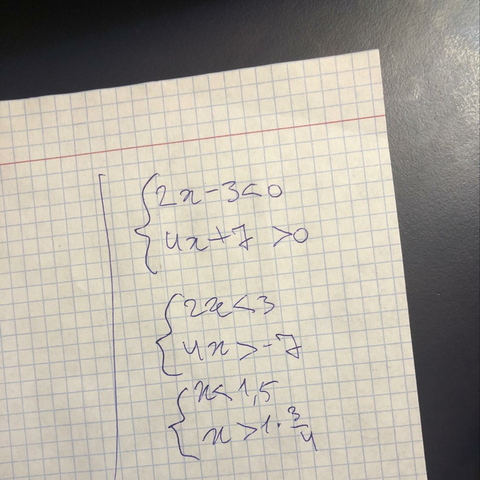 2x-3<0
4x+7 >0
2x<3
4x>-7
x<1,5
x>1·3/4